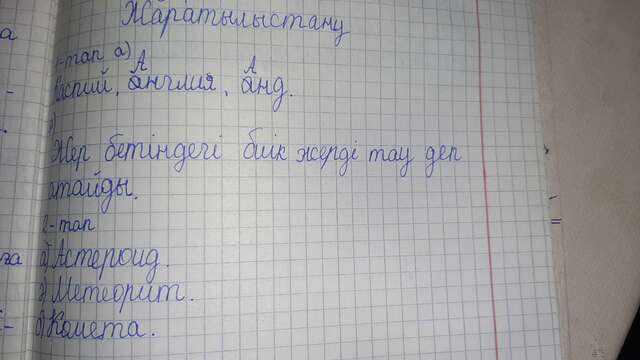 Жаратылыстану
1-тап а)
Каспий, Англия, Анд.
Жер бетіндегі биік жерді тау деп
атайды.
2-тап
а) Астероид.
Метеорит.
б) Комета.